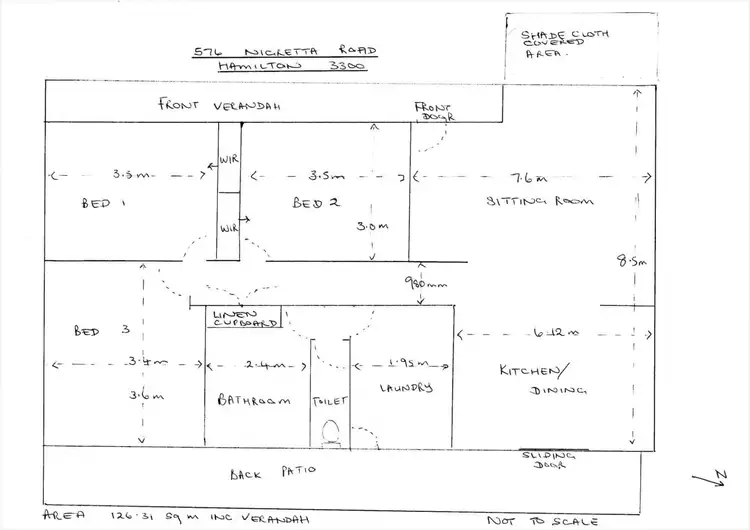 576 NIGRETTA ROAD
HAMILTON 3300
SHADE CLOTH
COVERED
AREA.
FRONT VERANDAH
FRONT
DOOR
WIR
3.5m
3.5m
7.6m
BED 1
BED 2
SITTING ROOM
WIR
3.0m
8.5m
980mm
LINEN
CUPBOARD
BED 3
6.12m
3.4m
2.4m
1.95m
KITCHEN/
DINING
LAUNDRY
3.6m
BATHROOM
TOILET
SLIDING
DOOR
BACK PATIO
N
AREA 126.31 Sq m INC VERANDAH
NOT TO SCALE